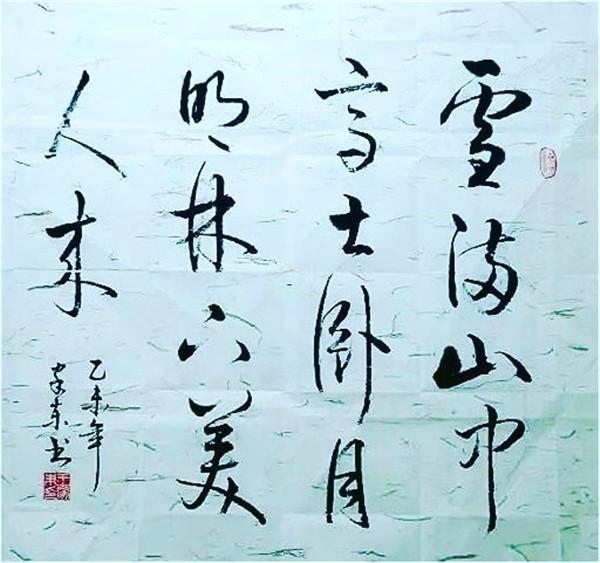 雪满山中
高士卧月
明林下美
人来
乙未年
书